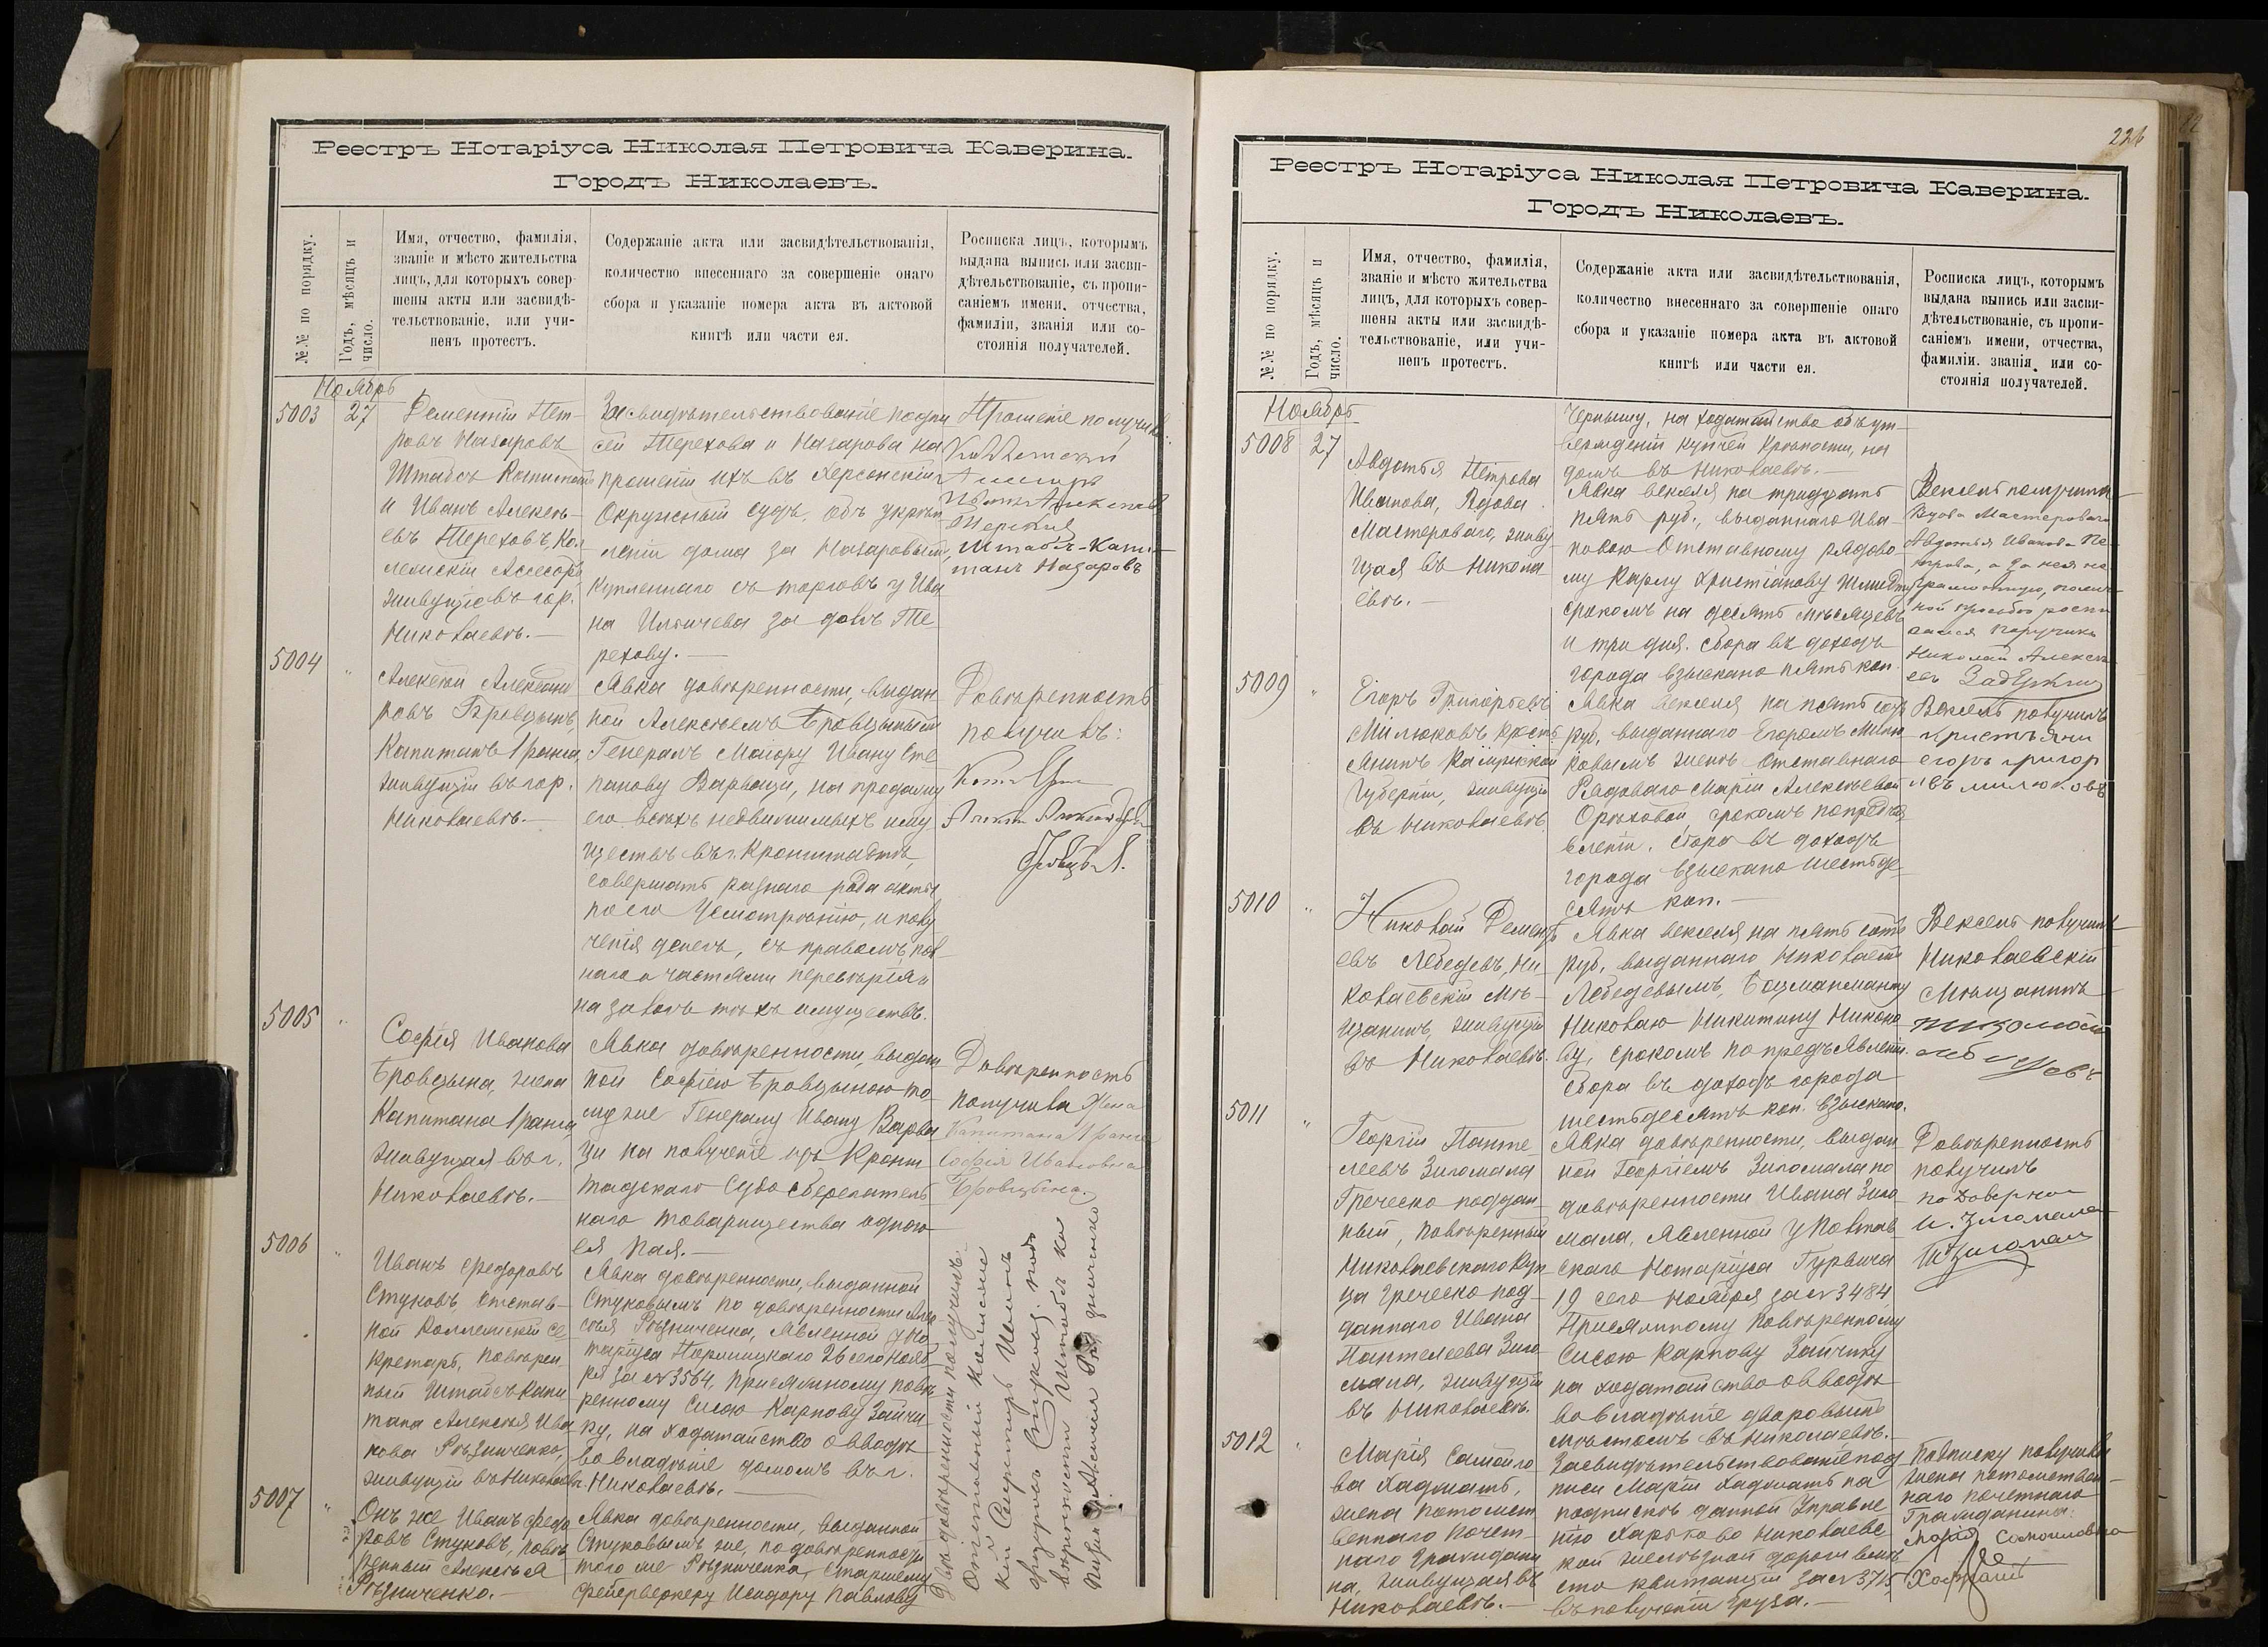 Реестръ Нотаріуса Николая Петровича Каверина.
Городъ Николаевъ.
№№ по порядку.
Годъ, мѣсяцъ и
число.
Имя, отчество, фамилія,
званіе и мѣсто жительства
лицъ, для которыхъ совер-
шены акты или засвидѣ-
тельствованіе, или учи-
ненъ протестъ.
Содержаніе акта или засвидѣтельствованія,
количество внесеннаго за совершеніе онаго
сбора и указаніе номера акта въ актовой
книгѣ или части ея.
Росписка лицъ, которымъ
выдана выпись или засви-
дѣтельствованіе, съ пропи-
саніемъ имени, отчества,
фамиліи, званія или со-
стоянія получателей.
Ноябрь
5003
27
Дементій Пет-
ровъ Назаровъ
Штабсъ Капитанъ
и Иванъ Алексѣ-
евъ Тереховъ, Кол
лежскій Ассесоръ
живущіе въ гор.
Николаевѣ.—
Засвидѣтельствованіе подпи
сей Терехова и Назарова на
прошеніи ихъ въ Херсонскій
Окружный судъ, объ укрѣп
леніи дома за Назаровымъ,
купленнаго съ торговъ у Ива
на Ильичева за долгъ Те
рехову.—
Прошеніе получилъ:
Штабсъ-Капи-
танъ Назаровъ
5004
"
Алексѣй Александ
ровъ Бровцынъ,
Капитанъ 1 ранга,
живущій въ гор.
Николаевѣ.—
Явка довѣренности, выдан
ной Алексѣемъ Бровцынымъ
Генералъ Маіору Ивану Сте
панову Варваци, на продажу
его всѣхъ недвижимыхъ иму
ществъ въ г. Кронштадтѣ,
совершать разнаго рода акты
по его усмотрѣнію, и полу
ченія денегъ, съ правомъ, пол
наго и частями перевѣрія и
на залогъ тѣхъ имуществъ.
Довѣренность
получилъ:
5005
"
Софія Иванова
Бровцына, жена
Капитана 1 ранга,
живущая въ г.
Николаевѣ.—
Явка довѣренности, выдан
ной Софіею Бровцыною то
му же Генералу Ивану Варва
ци на полученіе изъ Кронш
тадскаго Судо сберегатель
наго товарищества одного
ея пая.—
Довѣренность
получила Жена
Капитана 1 ранга
Софія Ивановна
Бровцына.
5006
"
Иванъ Федоровъ
Стуковъ, отстав-
ной Коллежскій Се
кретарь, повѣрен
ный Штабсъ Капи
тана Алексѣя Ива
нова Рѣзниченко,
живущій въ Николаевѣ
Явка довѣренности, выданной
Стуковымъ по довѣренности Алек
сѣя Рѣзниченка, явленной у Но
таріуса 26 сего Нояб
ря за № 3564, присяжному повѣ
ренному Сысою Карпову Зайчи
ку, на ходатайство о вводѣ
во владѣніе домомъ въ г.
Николаевѣ.—
Двѣ довѣренности получилъ:
Отставной Коллежс
кій Секретарь Иванъ
Федоровъ Стуковъ, по до
вѣренности Штабсъ ка
питана Алексѣя Рѣзниченко
5007
"
Онъ же Иванъ Федо
ровъ Стуковъ, повѣ
ренный Алексѣя
Рѣзниченко.—
Явка довѣренности, выданной
Стуковымъ же, по довѣренности
того же Рѣзниченка, Старшему
Фейерверкеру Исидору Павлову
226
Реестръ Нотаріуса Николая Петровича Каверина.
Городъ Николаевъ.
№№ по порядку.
Годъ, мѣсяцъ и
число.
Имя, отчество, фамилія,
званіе и мѣсто жительства
лицъ, для которыхъ совер-
шены акты или засвидѣ-
тельствованіе, или учи-
ненъ протестъ.
Содержаніе акта или засвидѣтельствованія,
количество внесеннаго за совершеніе онаго
сбора и указаніе номера акта въ актовой
книгѣ или части ея.
Росписка лицъ, которымъ
выдана выпись или засви-
дѣтельствованіе, съ пропи-
саніемъ имени, отчества,
фамиліи, званія или со-
стоянія получателей.
Ноябрь
Чернышу, на ходатайство объ ут-
вержденіи купчей крѣпости, на
домъ въ Николаевѣ.—
5008
27
Авдотья Петрова
Иванова, Вдова
Мастероваго, живу
щая въ Никола-
евѣ.—
Явка векселя на тридцать
пять руб., выданнаго Ива-
новою Отставному рядово-
му Карлу Христіанову Шмидту
срокомъ на десять мѣсяцевъ
и три дня. Сбора въ доходъ
города взыскано пять коп.
Вексель получила
Вдова Мастероваго
Авдотья Иванова Пе-
трова, а за нея не
грамотную, по лич-
ной просьбѣ роспи
сался Поручикъ
Николай Алексѣ
евъ
5009
"
Егоръ Григорьевъ
Милюковъ, Крестья
янинъ Калужской
Губерніи, живущій
въ Николаевѣ.
Явка векселя на пятьсотъ
руб., выданнаго Егоромъ Милю
ковымъ женѣ Отставнаго
Рядоваго Маріи Алексѣевой
Орѣховой срокомъ по предъя
вленіи. Сбора въ доходъ
города взыскано шестьде
сятъ коп.—
Вексель получилъ
кристьяни
егоръ григор
ивъ милюковъ
5010
"
Николай Дементь
евъ Лебедевъ, Ни-
колаевскій Мѣ-
щанинъ, живущій
въ Николаевѣ.
Явка векселя на пятьсотъ
руб., выданнаго Николаемъ
Лебедевымъ, Боцманманту
Николаю Никитину Никоно
ву, срокомъ по предъявленіи.
Сбора въ доходъ города
шестьдесятъ коп. взыскано.
Вексель получилъ
Николаевскій
Мѣщанинъ
николай
лебедевъ
5011
"
Георгій Панте
леевъ Зигомала
Греческо поддан
ный, повѣренный
Николаевскаго Куп
ца Греческо под-
даннаго Ивана
Пантелеева Зиго
мала, живущій
въ Николаевѣ.
Явка довѣренности, выдан
ной Георгіемъ Зигомала по
довѣренности Ивана Зиго
мала, явленной у Полтав
скаго Нотаріуса Гурвича
19 сего Ноября за № 3484,
Присяжному Повѣренному
Сысою Карпову Зайчику
на ходатайство о вводѣ
во владѣніе дворовымъ
мѣстомъ въ Николаевѣ.—
Довѣренность
получилъ
по доверию
И. Зигомала
5012
"
Марія Самойло
ва Хаджать,
жена потомст
веннаго почет-
наго гражданн
на, живущая въ
Николаевѣ.—
Засвидѣтельствованіе под
писи Маріи Хаджать на
подпискѣ данной Управле
нію Харьково Николаевс
кой желѣзной дороги вмѣ
сто квитанціи за № 3715,
въ полученіи груза.—
Подписку получила
жена потомствен-
наго почетнаго
Гражданина:
Марія Самоиловна